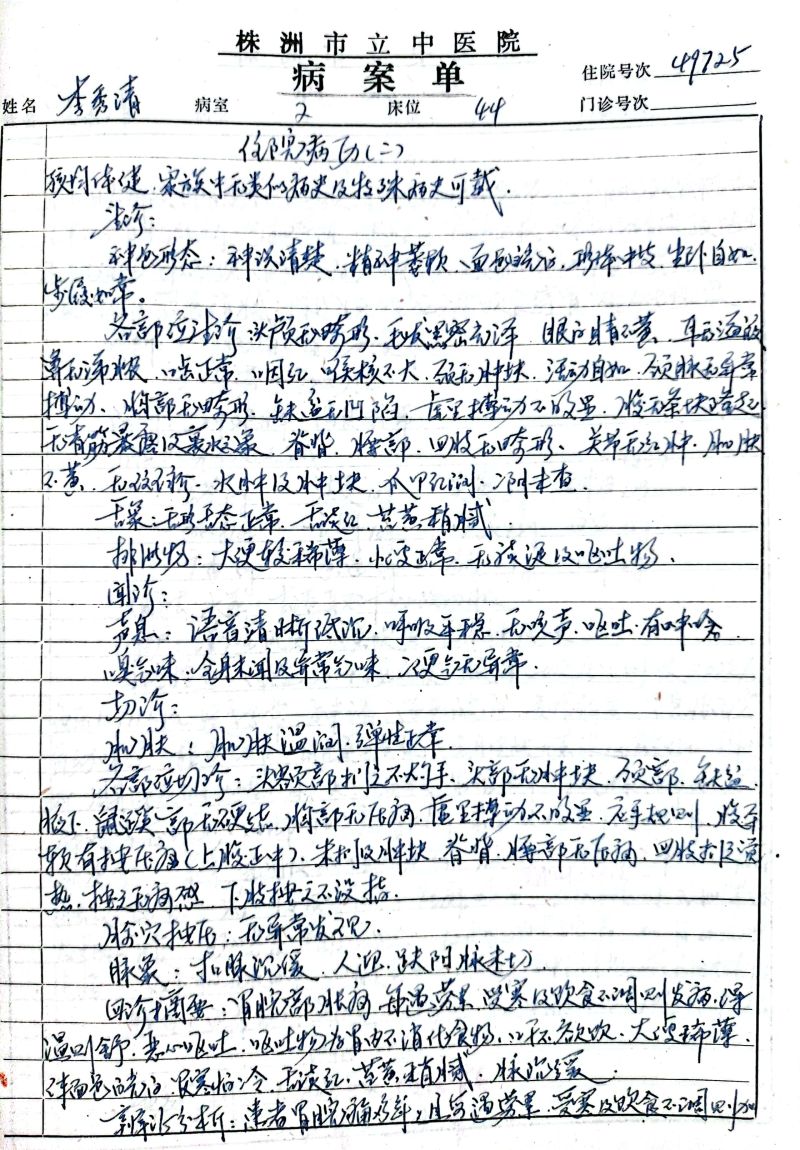 株洲市立中医院
病案单
住院号次 49725
姓名 李秀清 病室 2 床位 44 门诊号次
住院病历(二)
孩均体健,家族中无类似病史及特殊病史可载。
望诊:
神色形态:神识清楚,精神萎软,面色㿠白,形体中等,坐卧自如,
步履如常。
各部位望诊 头颅无畸形,毛发黑密光泽 眼白睛不黄,耳无溢液
鼻无涕脓,口唇正常,咽红,喉核不大,颈无肿块,活动自如,颈脉无异常
搏动,胸部无畸形,缺盆无凹陷,虚里搏动不明显,腹无条块隆起
无青筋暴露及裹水之象,脊背、腰部、四肢无畸形、关节无红肿,肌肤
不黄,无皮疹、水肿及肿块,爪甲红润,二阴未查
舌象:舌形舌态正常,舌淡红,苔黄稍腻
排泄物:大便较稀薄,小便正常,无痰涎及呕吐物。
闻诊:
声息:语音清晰低沉,呼吸平稳,无咳声,呕吐,有
嗅气味,全身未闻及异常气味,二便气无异常。
切诊:
肌肤:肌肤温润,弹性正常
各部位切诊:头额部扪之不灼手,头部无肿块,颈部、缺盆
腋下、鼠蹊部无硬结,胸部无压痛,虚里搏动不明显,应手规则,腹平
软有按压痛(上腹正中),未扪及肿块 脊背、腰部无压痛,四肢扪之温
热,按之无痛楚,下肢按之不没指。
腧穴按压:无异常发现。
脉象:扣脉沉缓,人迎、趺阳脉未切
四诊摘要:胃脘部胀痛,每遇劳累,受寒及饮食不调则发病,得
温则舒,恶心呕吐,呕吐物为胃内不消化食物,口干不欲饮,大便稀薄,
体面色㿠白,畏寒怕冷,舌淡红,苔黄稍腻,脉沉缓
辨证分析:患者胃脘痛多年,且每遇劳累,受寒及饮食不调则加